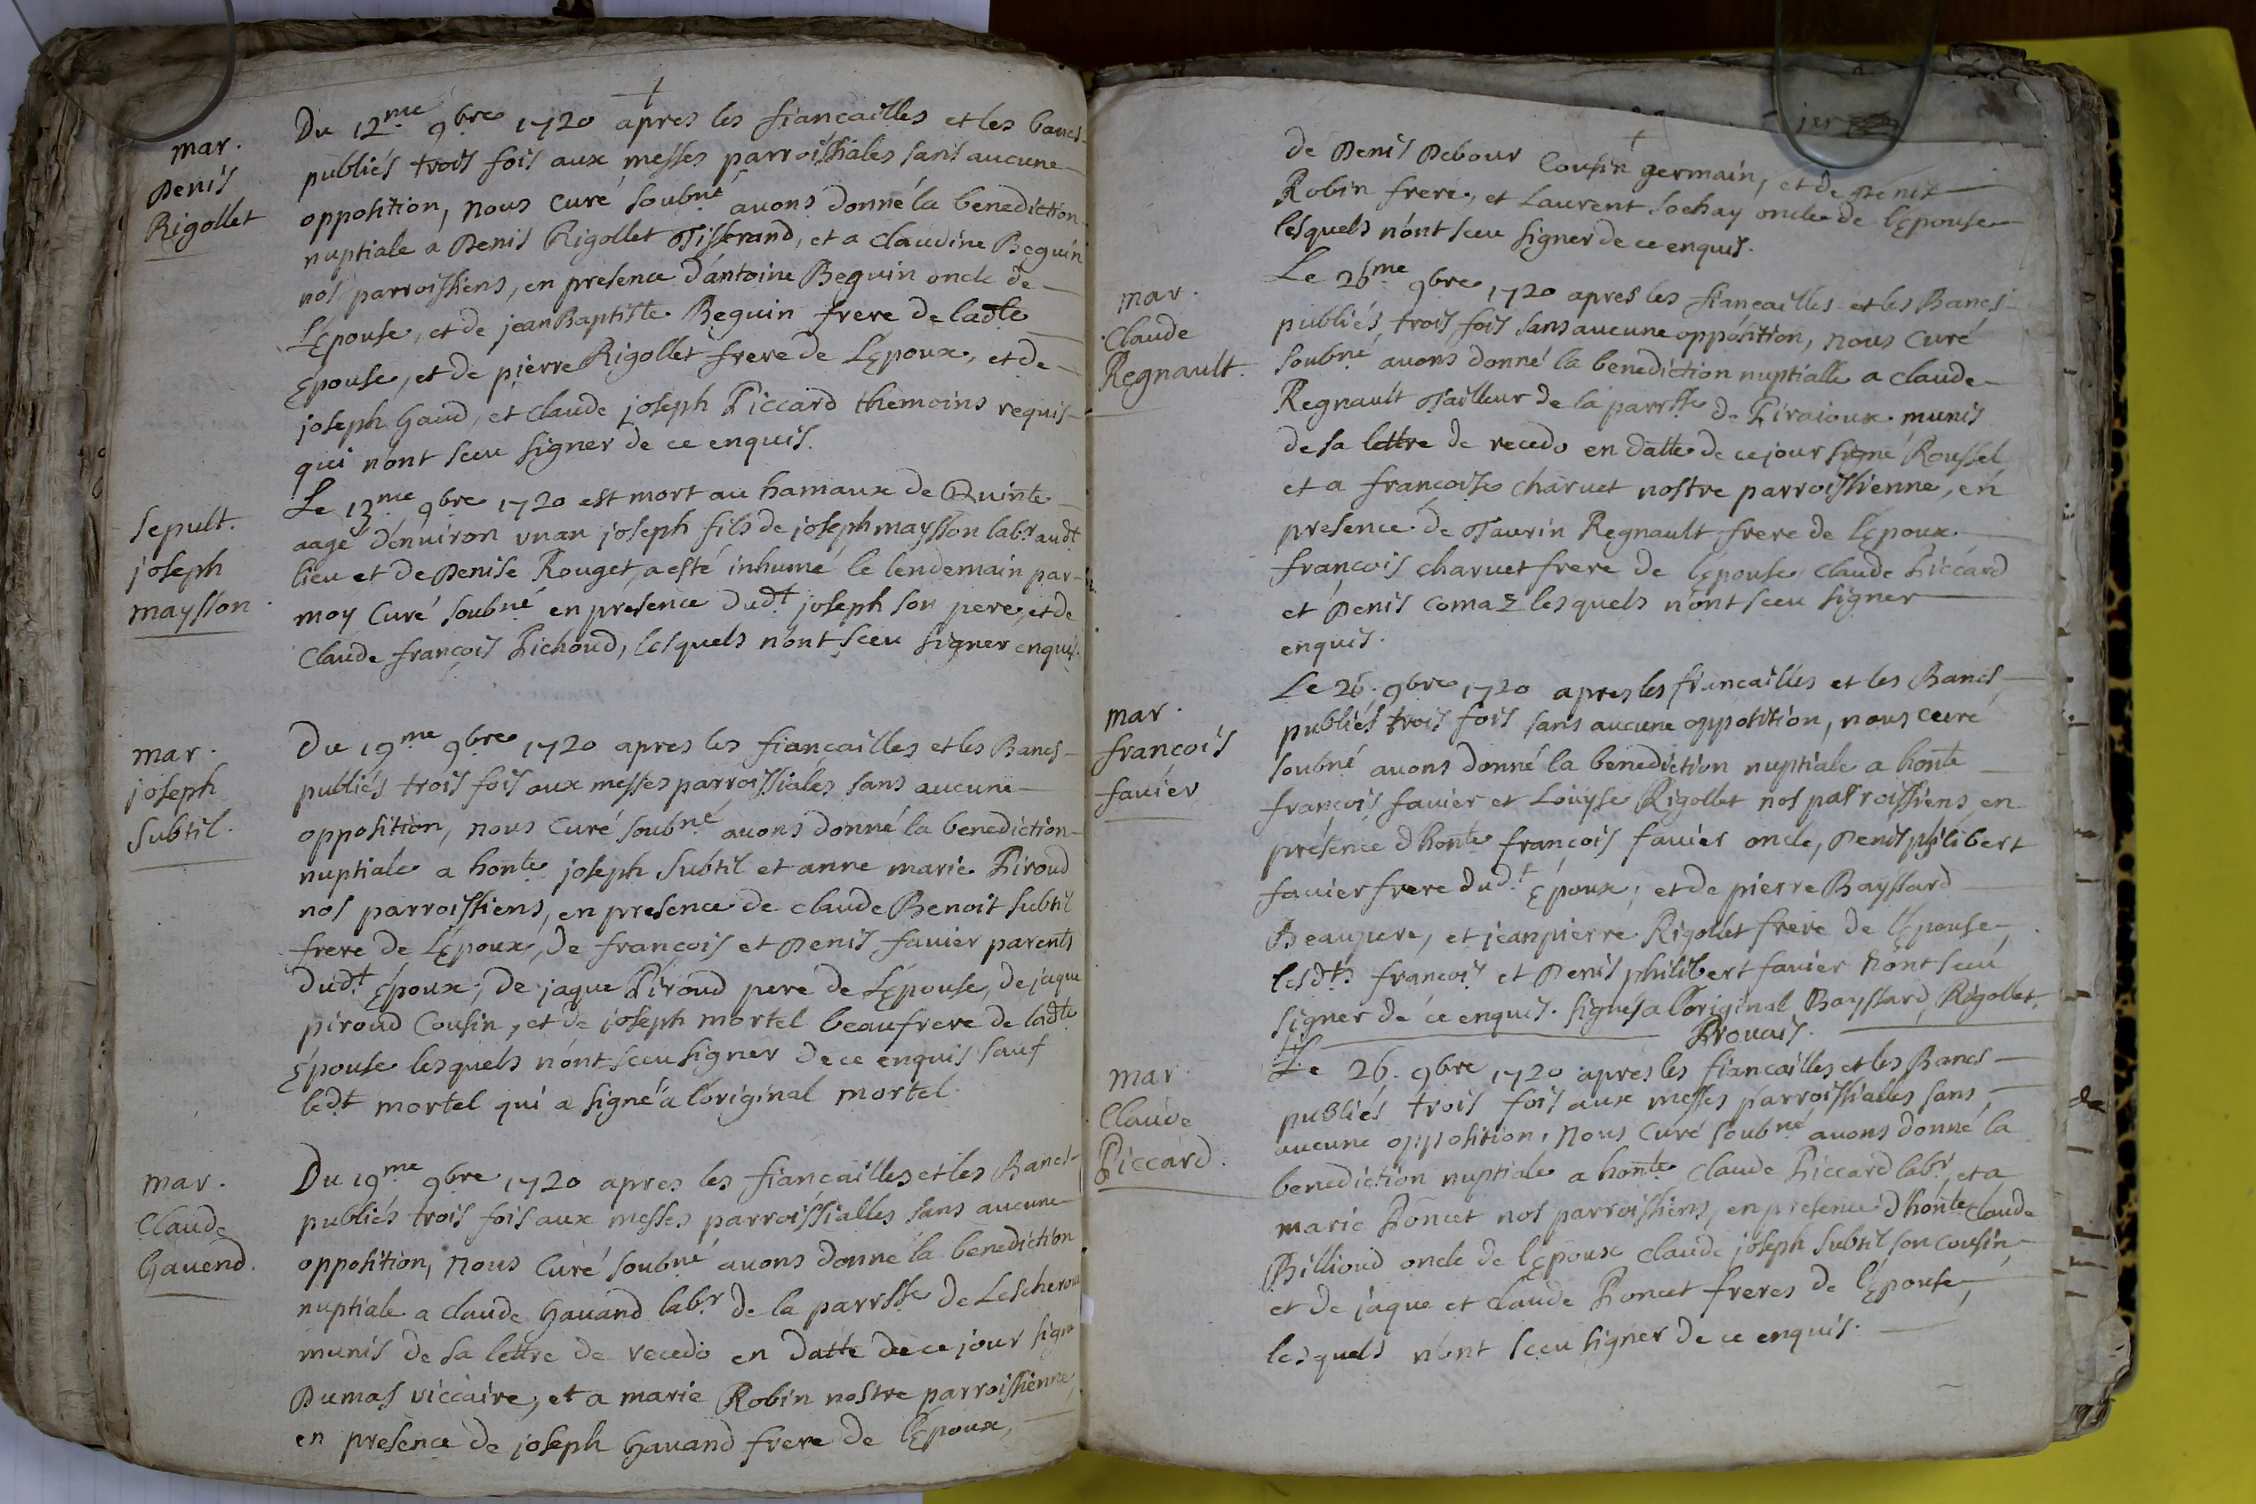 Du 12me 9bre 1720 apres les fiançailles et les bancs
mar.
Denis
Rigollet
publiés trois fois aux messes parroissiales sans aucune
opposition, nous curé soubné avons donné la benediction
nuptiale a Denis Rigollet Tisserand, et a claudine Beguin
nos parroissiens, en presence d'antoine Beguin oncle de
L'Epouse, et de jean Baptiste Beguin frere de ladte
Epouse, et de pierre Rigollet frere de L'Epoux, et de
joseph Gaud, et claude joseph Piccard themoins requis
qui n'ont sceu signer de ce enquis.
sepult.
joseph
maysson
Le 13me 9bre 1720 est mort au hamaux de Quinte
aagé d'enuiron vn an joseph fils de joseph maysson labr audt
lieu et de Denise Rouget, a esté inhumé le lendemain par
moy Curé soubné en présence dudt joseph son pere, et de
Claude françois Pichoud, lesquels n'ont sceu signer enquis.
mar.
joseph
subtil.
Du 19me 9bre 1720 apres les fiançailles et les Bancs
publiés trois fois aux messes parroissiales sans aucune
opposition, nous curé soubné avons donné la benediction
nuptiale a honte joseph subtil et anne marie Piroud
nos parroissiens, en presence de claude Benoit subtil
frere de L'Epoux, de françois et Denis favier parents
dudt Epoux, de jaque Piroud pere de L'Epouse, de jaque
piroud Cousin, et de joseph mortel beaufrere de ladte
Epouse lesquels n'ont sceu signer de ce enquis sauf
ledt mortel qui a signé a l'original mortel
mar.
Claude
Gavend.
Du 19me 9bre 1720 apres les fiançailles et les Bancs
publiés trois fois aux messes parroissialles sans aucune
opposition, nous Curé soubné avons donné la benediction
nuptiale a claude Gavand labr de la parrsse de Lescheroux
munis de sa lettre de recedo en datte de ce jour signé
Dumas viccaire, et a marie Robin nostre parroissienne,
en presence de joseph Gavand frere de l'Epoux,
de Denis Debour Cousin germain, et de Denis
Robin frere, et Laurent sochay oncle de l'Epouse
lesquels n'ont sceu signer de ce enquis.
mar.
Claude
Regnault.
Le 26me 9bre 1720 apres les fiançailles et les Bancs
publiés trois fois sans aucune oppósition, nous Curé
soubné avons donné la benediction nuptialle a claude
Regnault Tailleur de la parrsse de Piraioux munis
de sa lettre de recedo en datte de ce jour signé Roussel
et a françoise charuet nostre parroissienne, en
presence de Taurin Regnault frere de l'Epoux
françois charuet frere de l'epouse, claude Piccard
et Denis comaz lesquels n'ont sceu signer
enquis.
mar.
françois
favier
Le 26. 9bre 1720 apres les fiancailles et les Bancs
publiés trois fois sans aucune opposition, nous curé
soubné avons donné la benediction nuptiale a honte
françois favier et Louyse Rigollet nos parroissiens, en
présence d'honte françois favier oncle, Denis philibert
favier frere dudt Epoux; et de pierre Bayssard
Beaupere, et jean pierre Rigollet frere de l'Epouse,
lesdts françois et Denis philibert favier n'ont sceu
signer de ce enquis. signés a l'original Bayssard, Rigollet,
Provais.
mar
Claude
Piccard.
Le 26. 9bre 1720 apres les fiancailles et les Bancs
publiés trois fois aux messes parroissialles sans
aucune opposition, nous Curé soubné avons donné la
benediction nuptiale a honte claude Piccard labr, et a
marie Poncet nos parroissiens, en presence d'honte claude
Billioud oncle de l'Epoux claude joseph subtil son cousin,
et de jaque et claude Poncet freres de l'Epouse,
lesquels n'ont sceu signer de ce enquis.